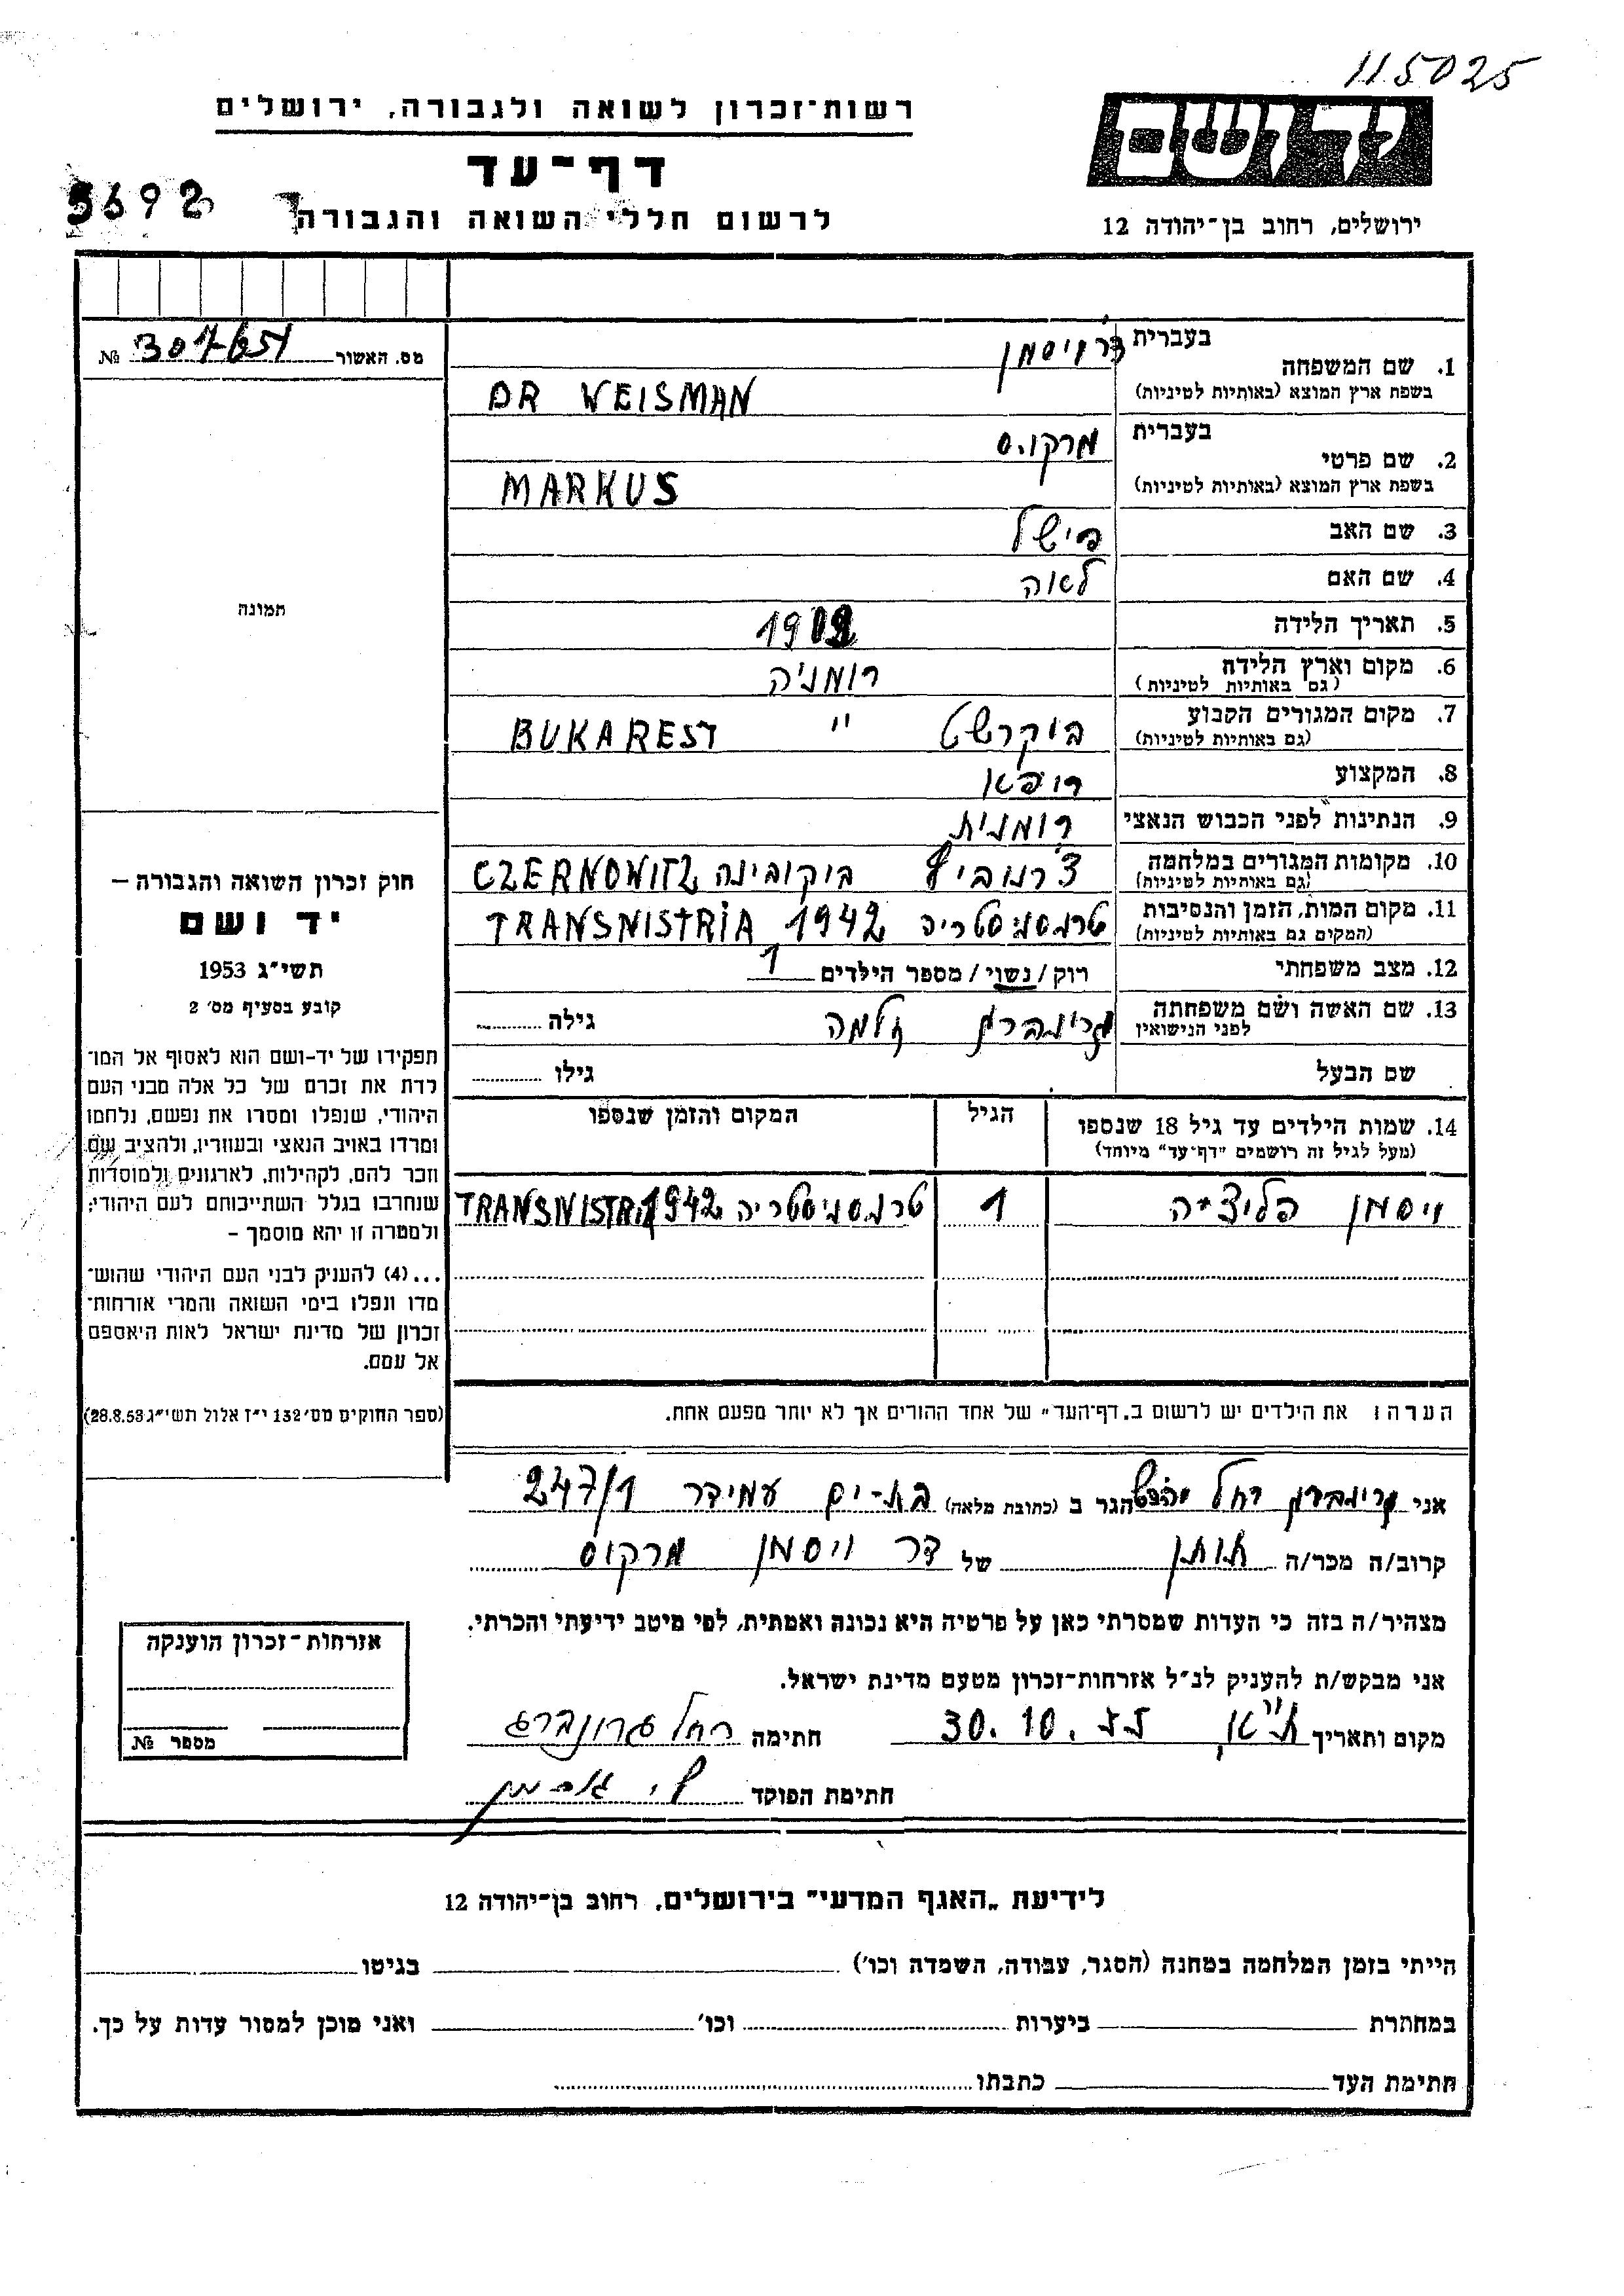 115025
רשות־זכרון לשואה ולגבורה, ירושלים
דף־עד
לרשום חללי השואה והגבורה
5692
יד ושם
ירושלים, רחוב בן־יהודה 12
מס. האשור №
1. שם המשפחה בעברית דר ויסמן
בשפת ארץ המוצא (באותיות לטיניות) DR WEISMAN
2. שם פרטי בעברית מרקוס
בשפת ארץ המוצא (באותיות לטיניות) MARKUS
3. שם האב פישל
4. שם האם לאוה
5. תאריך הלידה
6. מקום וארץ הלידה רומניה
(גם באותיות לטיניות)
7. מקום המגורים הקבוע בוקרשט " BUKAREST
(גם באותיות לטיניות)
8. המקצוע רופא
9. הנתינות לפני הכבוש הנאצי רומנית
10. מקומות המגורים במלחמה צ'רנוביץ בוקובינה CZERNOWITZ
(גם באותיות לטיניות)
11. מקום המות, הזמן והנסיבות טרנסניסטריה 1942 TRANSNISTRIA
(המקום גם באותיות לטיניות)
12. מצב משפחתי רוק / נשוי / מספר הילדים 1
13. שם האשה ושם משפחתה לפני הנישואין גרינברג גילה
שם הבעל גילו
14. שמות הילדים עד גיל 18 שנספו
(מעל לגיל זה רושמים "דף־עד" מיוחד)
הגיל
המקום והזמן שנספו
ויסמן פליציה 1 טרנסניסטריה 1942 TRANSNISTRIA
הערה: את הילדים יש לרשום ב„דף־העד" של אחד ההורים אך לא יותר מפעם אחת.
תמונה
חוק זכרון השואה והגבורה –
יד ושם
תשי"ג 1953
קובע בסעיף מס' 2
תפקידו של יד-ושם הוא לאסוף אל המו־
לדת את זכרם של כל אלה מבני העם
היהודי, שנפלו ומסרו את נפשם, נלחמו
ומרדו באויב הנאצי ובעוזריו, ולהציב שם
וזכר להם, לקהילות, לארגונים ולמוסדות
שנחרבו בגלל השתייכותם לעם היהודי;
ולמטרה זו יהא מוסמך –
...(4) להעניק לבני העם היהודי שהוש־
מדו ונפלו בימי השואה והמרי אזרחות־
זכרון של מדינת ישראל לאות היאספם
אל עמם.
(ספר החוקים מס' 132 י"ז אלול תשי"ג 28.8.53)
אני גרינברג רחל הגר ב (כתובת מלאה) בת-ים עמידר 247/1
קרוב/ה מכר/ה חותן של דר ויסמן מרקוס
מצהיר/ה בזה כי העדות שמסרתי כאן על פרטיה היא נכונה ואמתית, לפי מיטב ידיעתי והכרתי.
אני מבקש/ת להעניק לנ"ל אזרחות־זכרון מטעם מדינת ישראל.
מקום ותאריך ת"א, 30.10.55 חתימה רחל גרונברג
חתימת הפוקד
אזרחות־זכרון הוענקה
מספר №
לידיעת „האגף המדעי" בירושלים, רחוב בן־יהודה 12
הייתי בזמן המלחמה במחנה (הסגר, עבודה, השמדה וכו') בגיטו
במחתרת ביערות וכו' ואני מוכן למסור עדות על כך.
חתימת העד כתבתו